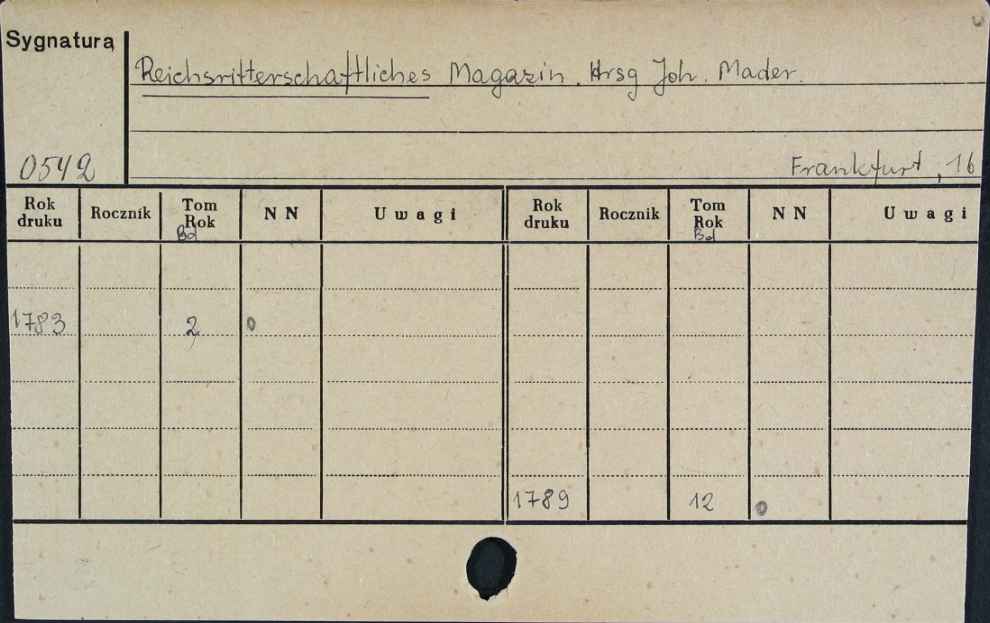 Sygnatura
Reichsritterschaftliches Magazin. Hrsg Joh. Mader.
0542
Frankfurt, 16
Rok druku Rocznik Tom Rok Bd N N Uwagi Rok druku Rocznik Tom Rok Bd N N Uwagi
1783 2 0
1789 12 0